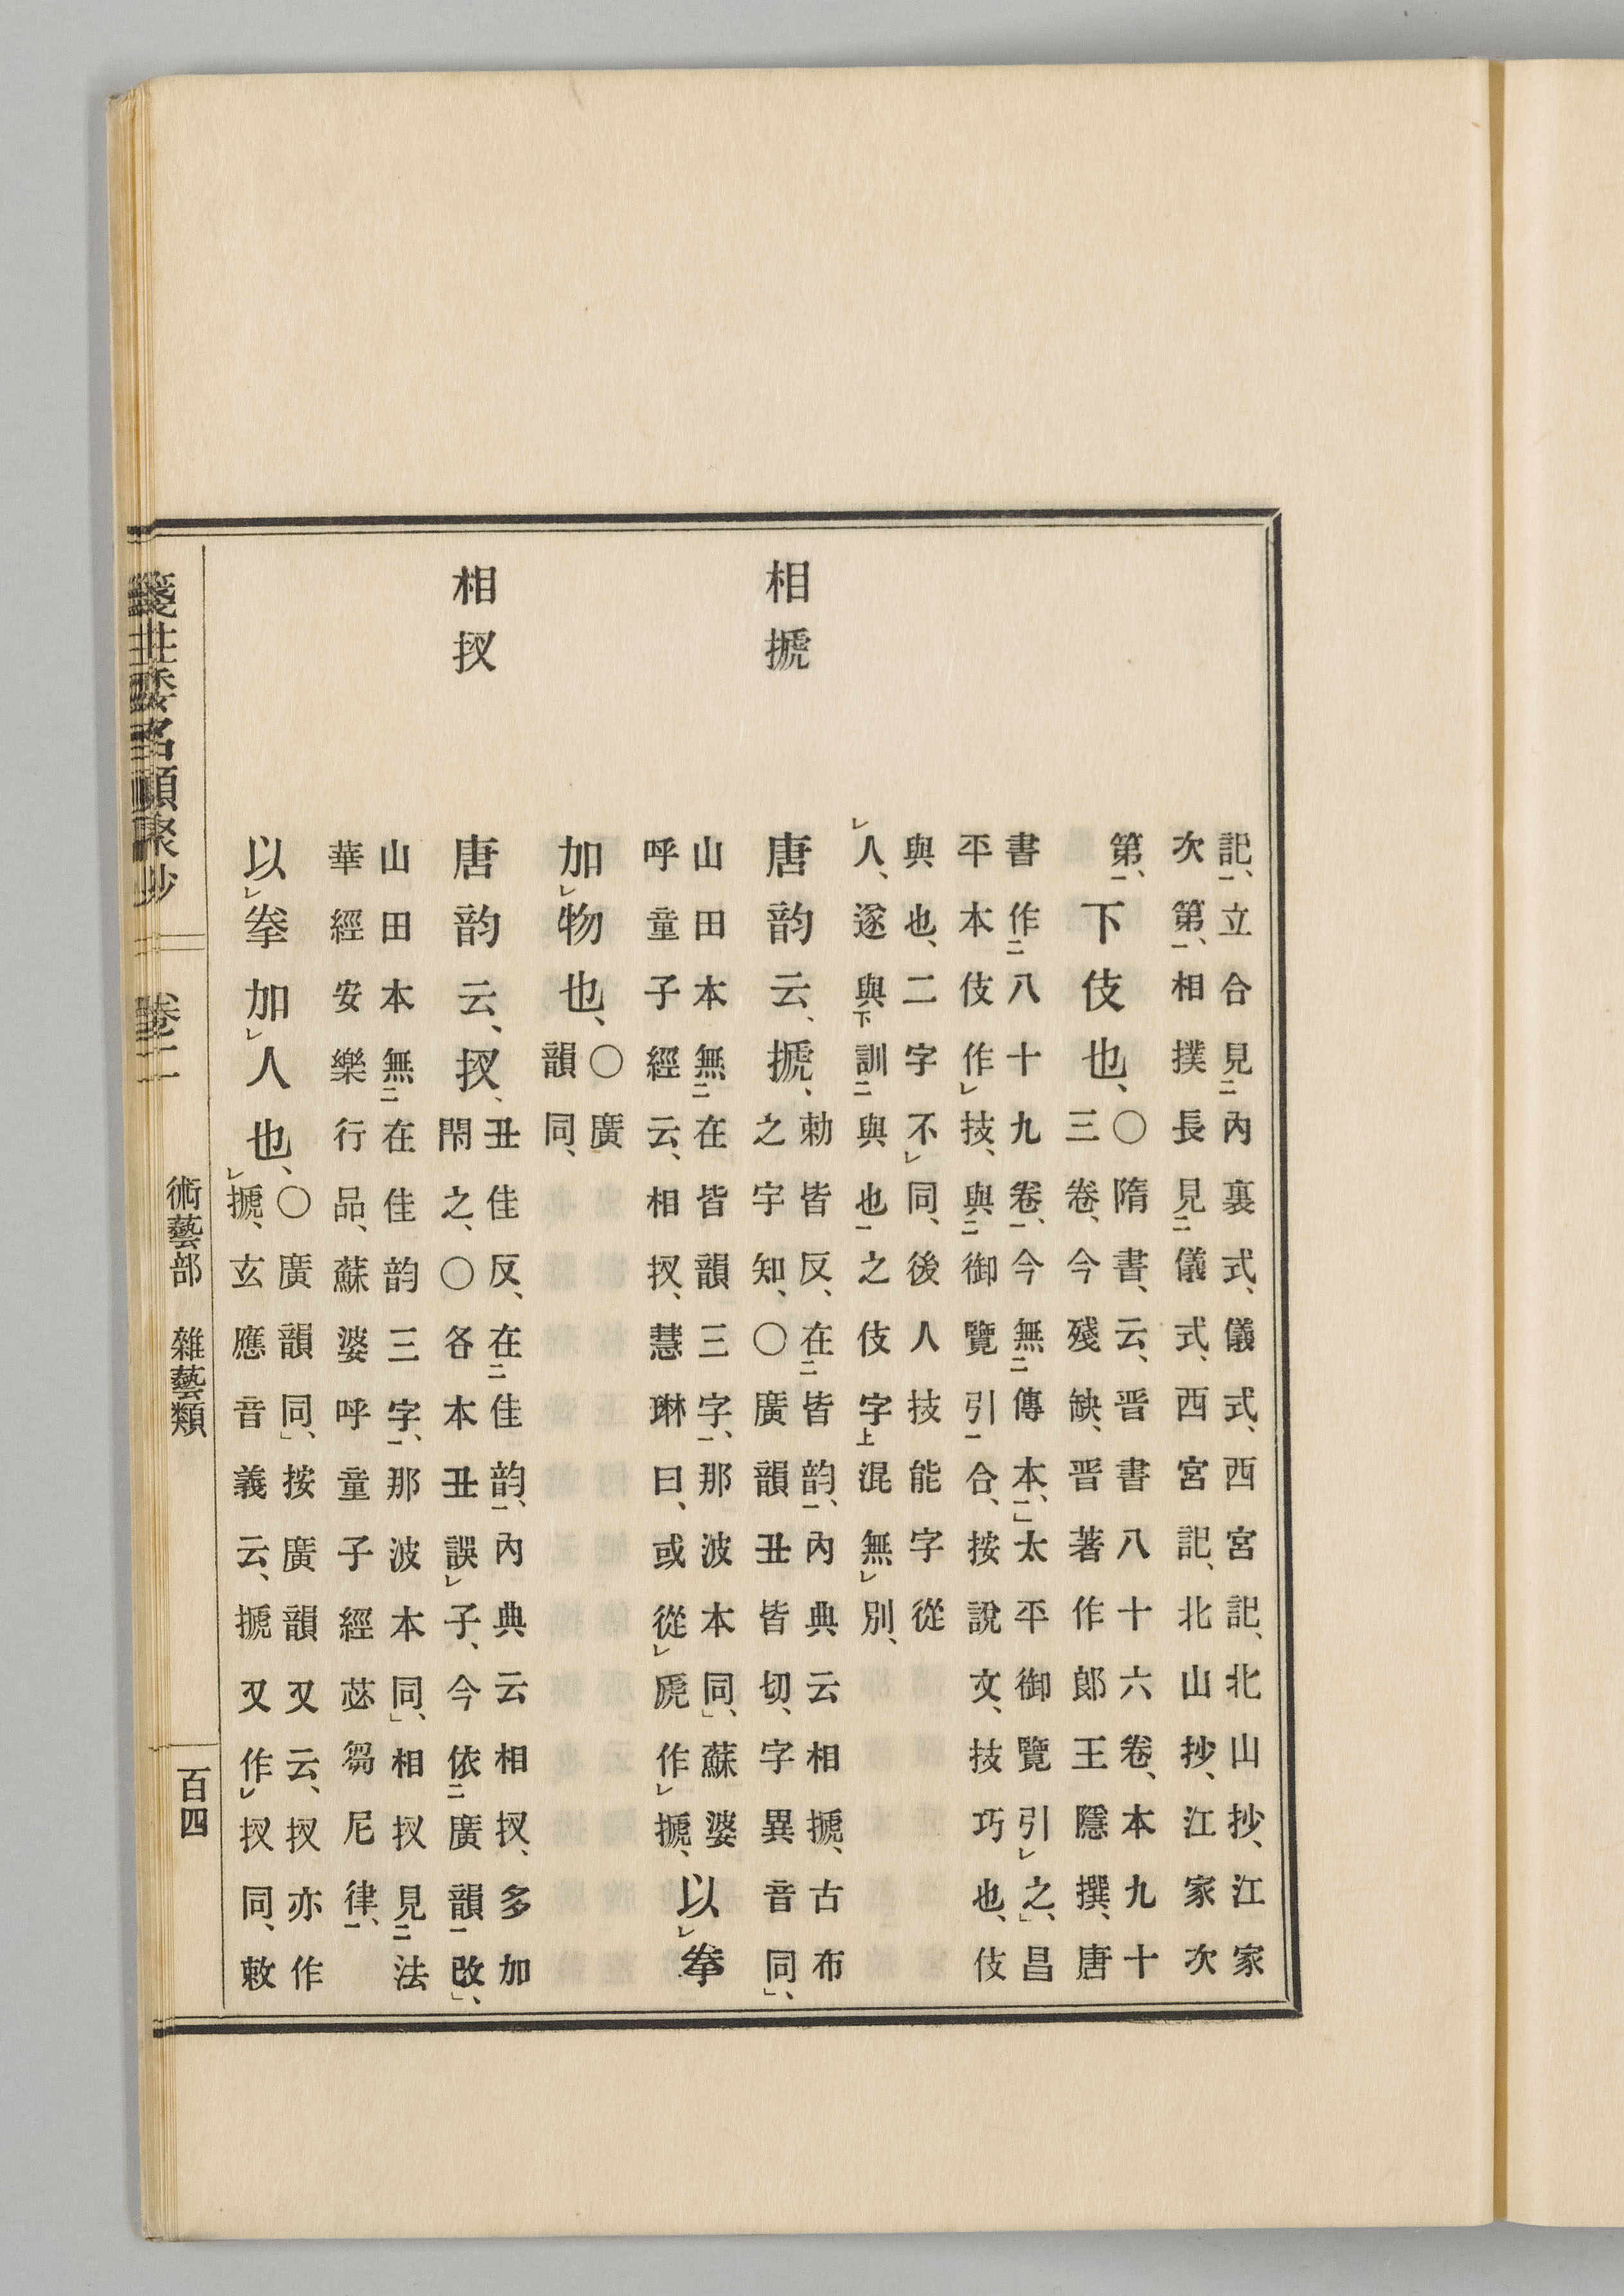 記、立合見內裏式、儀式、西宮記、北山抄、江家
次第、相撲長見儀式、西宮記、北山抄、江家次
第、下伎也、○隋書、云、晋書八十六卷、本九十
三卷、今殘缺、晋著作郎王隱撰、唐
書作八十九卷、今無傳本、太平御覽引之、昌
平本伎作技、與御覽引合、按說文、技巧也、伎
與也、二字不同、後人技能字從
人、遂與訓與也之伎字混無別、
相搋
唐韵云、搋、勅皆反、在皆韵、內典云相搋、古布
之宇知、○廣韻丑皆切、字異音同、
山田本無在皆韻三字、那波本同、蘇婆
呼童子經云、相扠、慧琳曰、或從虒作搋、以拳
加物也、○廣
韻同、
相扠
唐韵云、扠、丑佳反、在佳韵、內典云相扠、多加
閇之、○各本丑誤子、今依廣韻改、
山田本無在佳韵三字、那波本同、相扠見法
華經安樂行品、蘇婆呼童子經苾芻尼律、
以拳加人也、○廣韻同、按廣韻又云、扠亦作
搋、玄應音義云、搋又作扠同、敕
箋註倭名類聚抄 卷二 術藝部 雜藝類 百四